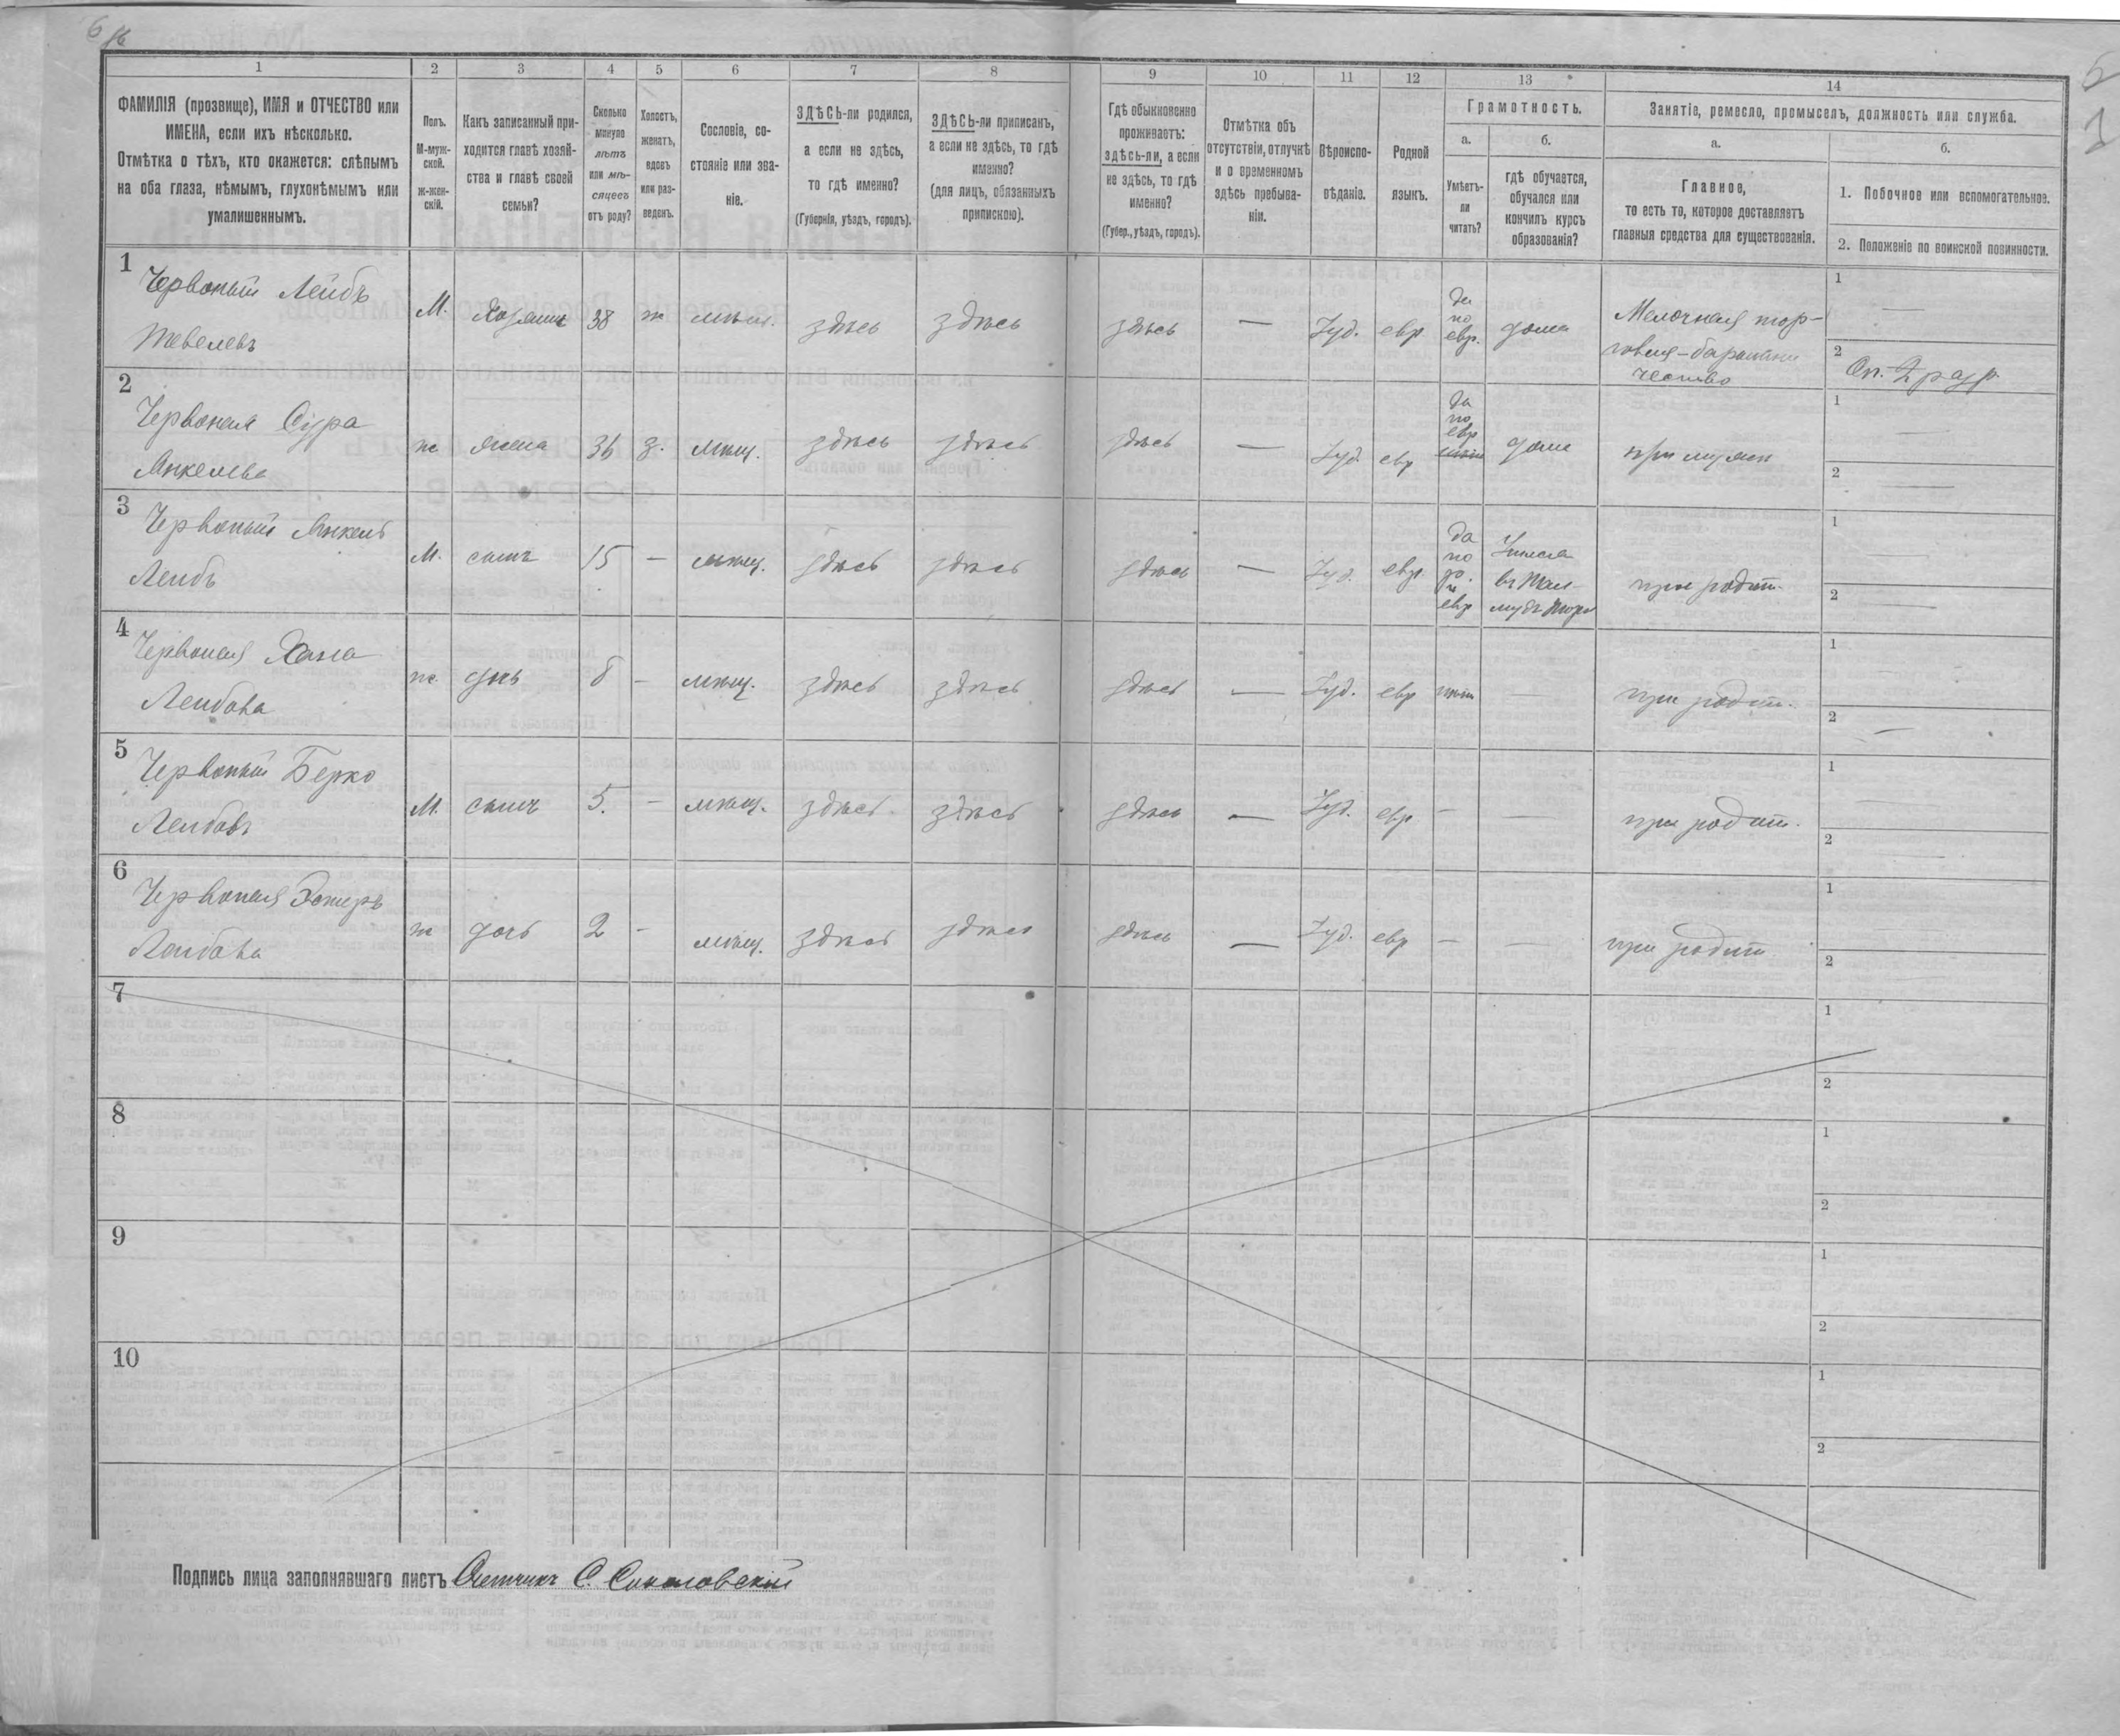 6
1 2 3 4 5 6 7 8 9 10 11 12 13 14
ФАМИЛІЯ (прозвище), ИМЯ и ОТЧЕСТВО или
ИМЕНА, если ихъ нѣсколько.
Отмѣтка о тѣхъ, кто окажется: слѣпымъ
на оба глаза, нѣмымъ, глухонѣмымъ или
умалишеннымъ.
Полъ.
М-муж-
ской.
ж-жен-
скій.
Какъ записанный при-
ходится главѣ хозяй-
ства и главѣ своей
семьи?
Сколько
минуло
лѣтъ
или мѣ-
сяцевъ
отъ роду?
Холостъ,
женатъ,
вдовъ
или раз-
веденъ.
Сословіе, со-
стояніе или зва-
ніе.
ЗДѢСЬ-ли родился,
а если не здѣсь,
то гдѣ именно?
(Губернія, уѣздъ, городъ).
ЗДѢСЬ-ли приписанъ,
а если не здѣсь, то гдѣ
именно?
(для лицъ, обязанныхъ
припискою).
Гдѣ обыкновенно
проживаетъ:
здѣсь-ли, а если
не здѣсь, то гдѣ
именно?
(Губер., уѣздъ, городъ).
Отмѣтка объ
отсутствіи, отлучкѣ
и о временномъ
здѣсь пребыва-
ніи.
Вѣроиспо-
вѣданіе.
Родной
языкъ.
Грамотность.
а.
Умѣетъ-
ли
читать?
б.
гдѣ обучается,
обучался или
кончилъ курсъ
образованія?
Занятіе, ремесло, промыселъ, должность или служба.
а.
Главное,
то есть то, которое доставляетъ
главныя средства для существованія.
б.
1. Побочное или вспомогательное.
2. Положеніе по воинской повинности.
1 Червоный Лейбъ
Тевелевъ
М. Хозяинъ 38 ж мѣщ. здѣсь здѣсь здѣсь — Іуд. евр
да
по
евр.
дома
Мелочная тор-
говля-барышни
чество
1 —
2 Оп. 2 разр.
2 Червоная Сура
Янкелева
ж жена 36 з. мѣщ. здѣсь здѣсь здѣсь — Іуд. евр
да
по
евр
дома при мужѣ
1 —
2 —
3 Червоный Янкель
Лейбъ
М. сынъ 15 — мѣщ. здѣсь здѣсь здѣсь — Іуд. евр
да
по
р.
и
евр
въ Тал
мудъ Торѣ
при родит.
1 —
2 —
4 Червоная Хана
Лейбова
ж дочь 8 — мѣщ. здѣсь здѣсь здѣсь — Іуд. евр нѣт — при родит.
1 —
2 —
5 Червоный Берко
Лейбовъ
М. сынъ 5. — мѣщ. здѣсь здѣсь здѣсь — Іуд. евр — — при родит.
1 —
2 —
6 Червоная Эстеръ
Лейбова
ж дочь 2 — мѣщ. здѣсь здѣсь здѣсь — Іуд. евр — — при родит
1 —
2 —
7
1
2
8
1
2
9
1
2
10
1
2
Подпись лица заполнявшаго листъ Счетчикъ С. Соколовскій